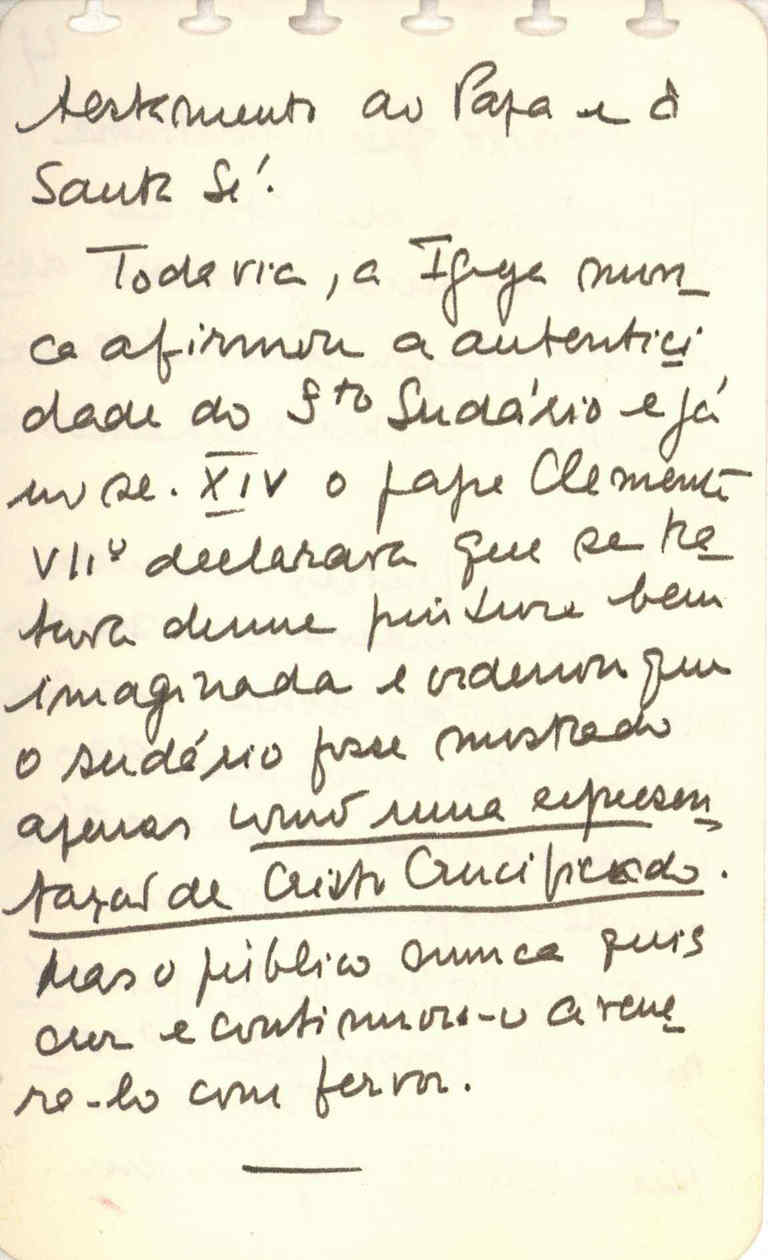 testamento ao Papa e à
Santa Sé.
Todavia, a Igreja nun_
ca afirmou a autentici
dade do Sto Sudário e já
no se. XIV o papa Clemente
VIIº declarava que se tra_
tava duma pintura bem
imaginada e ordenou que
o sudário fosse mostrado
apenas como uma represen_
tação de Cristo Crucificado.
Mas o público nunca quis
crer e continuou-o a vene_
rá-lo com fervor.